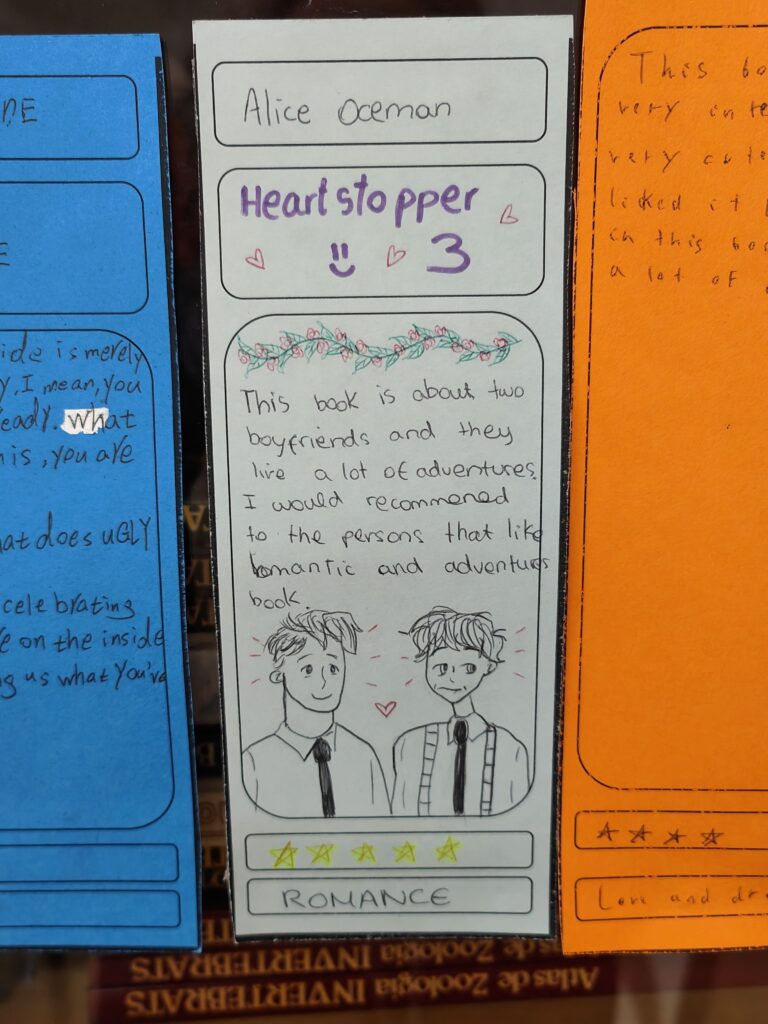 DE
E
ide is merely
y, I mean, you
eady. What
is, you are
at does UGLY
celebrating
e on the inside
g us what you've
Alice Oceman
Heartstopper
3
This book is about two
boyfriends and they
live a lot of adventures.
I would recommened
to the persons that like
romantic and adventures
book.
ROMANCE
This bo
very inte
very cute
liked it
in this boo
a lot of
Love and dr
Atlas de Zoologia INVERTEBRATS
Atlas de Zoologia INVERTEBRATS